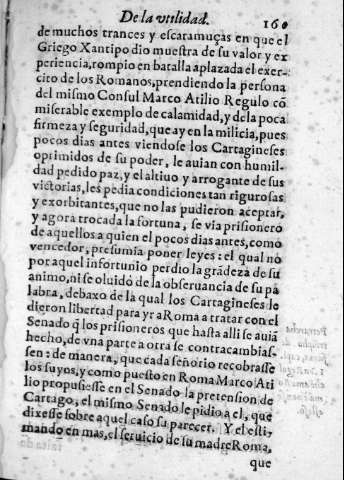 De la vtilidad. 160
de muchos trances y escaramuças en que el
Griego Xantipo dio muestra de su valor y ex
periencia, rompio en batalla aplazada el exer-
cito de los Romanos, prendiendo la persona
del mismo Consul Marco Atilio Regulo cõ
miserable exemplo de calamidad, y de la poca
firmeza y seguridad, que ay en la milicia, pues
pocos dias antes viendose los Cartagineses
oprimidos de su poder, le auian con humil-
dad pedido paz, y el altiuo y arrogante de sus
victorias, les pedia condiciones tan rigurosas
y exorbitantes, que no las pudieron aceptar,
y agora trocada la fortuna, se via prisionero
de aquellos a quien el pocos dias antes, como
vencedor, presumia poner leyes: el qual no
por aquel infortunio perdio la grãdeza de su
animo, ni se oluidò de la obseruancia de su pa
labra, debaxo de la qual los Cartagineses le
dieron libertad para yr a Roma a tratar con el
Senado q̃ los prisioneros que hasta alli se auiã
hecho, de vna parte a otra se contracambias-
sen: de manera, que cada señorio recobrasse
los suyos, y como puesto en Roma Marco Ati
lio propusiesse en el Senado la pretension de
Cartago, el mismo Senado le pidio a el, que
dixesse sobre aquel caso su parecer. Y el esti-
mando en mas, el seruicio de su madre Roma,
que